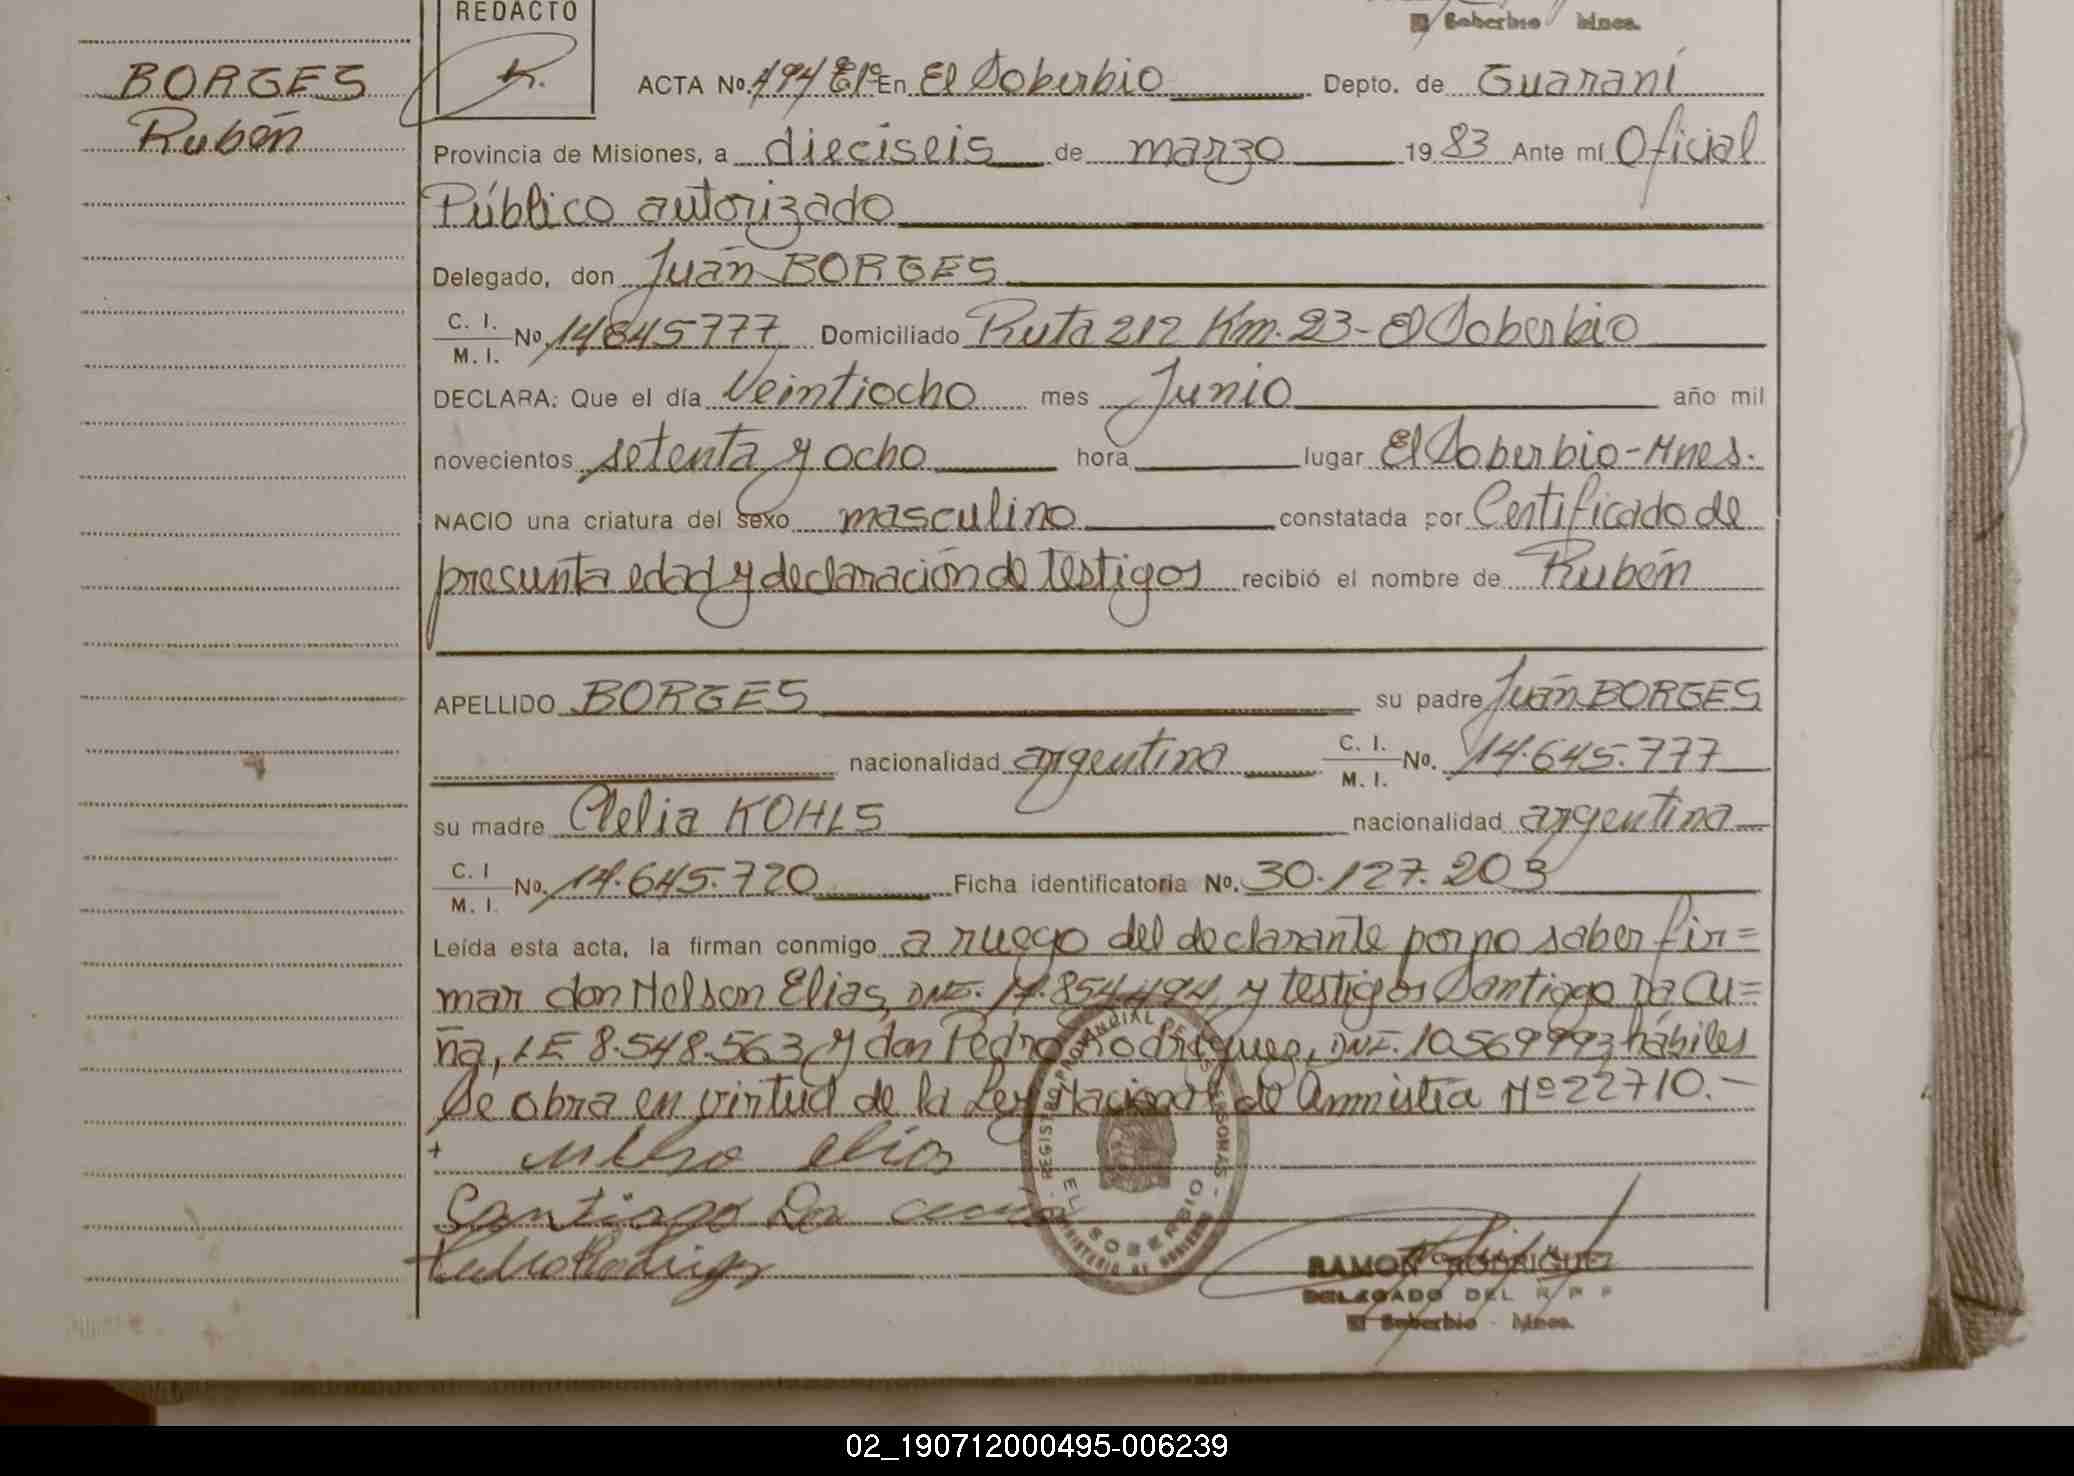 REDACTO
El Soberbio Mnes.
BORGES
Rubén
ACTA No. 494 En El Soberbio Depto. de Guaraní
Provincia de Misiones, a dieciseis de marzo 1983 Ante mí Oficial
Público autorizado
Delegado, don Juán BORGES
C. I.
M. I. No. 14645777 Domiciliado Ruta 212 Km. 23 - El Soberbio
DECLARA: Que el día Veintiocho mes Junio año mil
novecientos setenta y ocho hora lugar El Soberbio - Mnes.
NACIO una criatura del sexo masculino constatada por Certificado de
presunta edad y declaración de testigos recibió el nombre de Rubén
APELLIDO BORGES su padre Juán BORGES
nacionalidad argentina C. I.
M. I. No. 14.645.777
su madre Clelia KOHLS nacionalidad argentina
C. I
M. I. No. 14.645.720 Ficha identificatoria No. 30.127.203
Leída esta acta, la firman conmigo a ruego del declarante por no saber fir=
mar don Nelson Elias, DNI. 14.854.494, y testigos Santiago Da Cu=
ña, LE 8.548.563, y don Pedro Rodriguez, DNI. 10569993 hábiles
Se obra en virtud de la Ley Nacional de Amnistía Nº 22710.-
+ Nelso elias
Santiago Da cuña
Pedro Rodriguez
REGISTRO PROVINCIAL DE LAS PERSONAS
EL SOBERBIO
MINISTERIO DE GOBIERNO
RAMON RODRIGUEZ
DELEGADO DEL R P P
El Soberbio - Mnes.
02_190712000495-006239